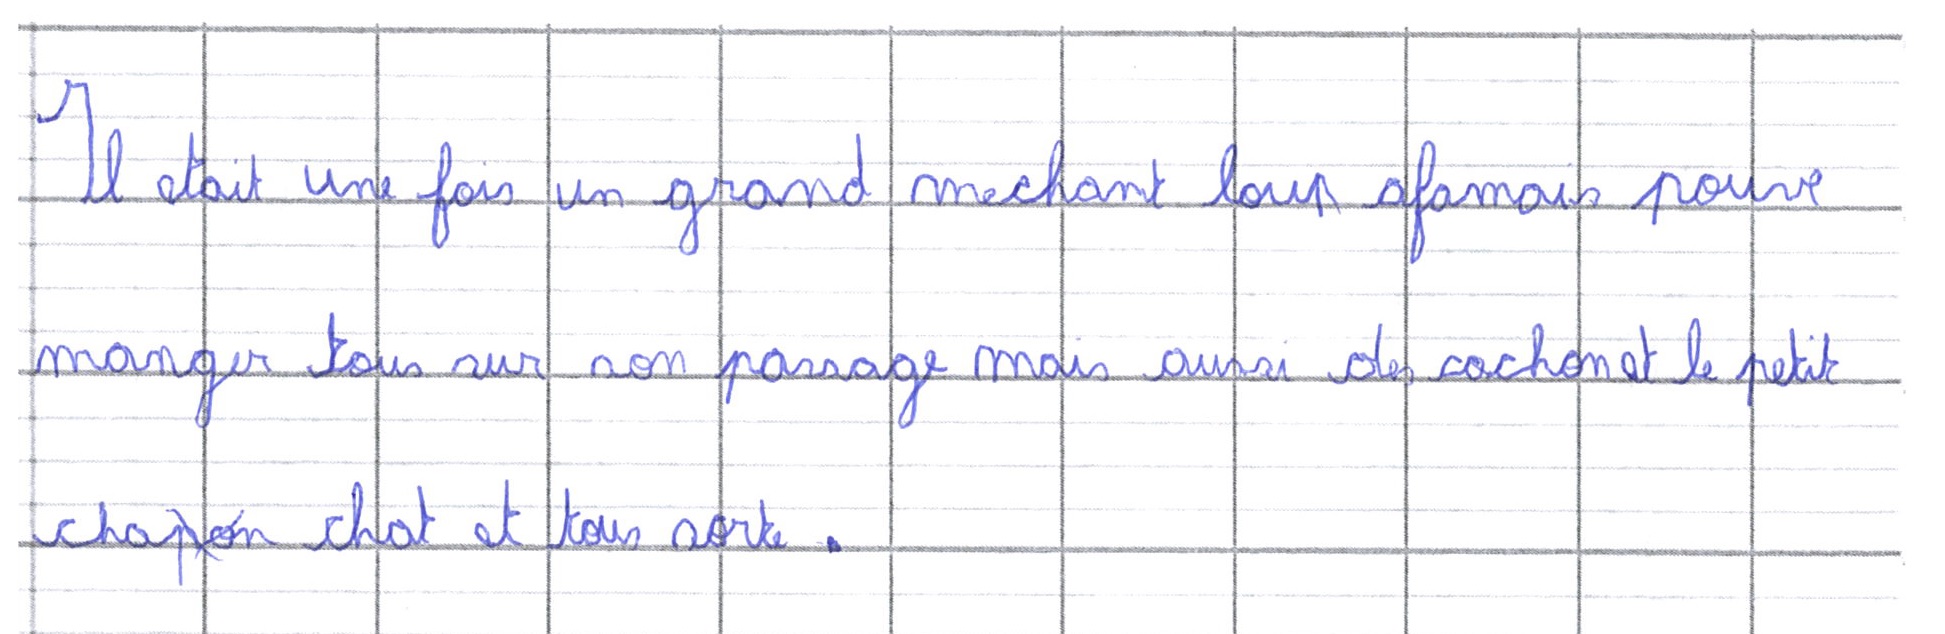 Il etait une fois un grand mechant loup afamais pouve
manger tous sur son passage mais aussi des cochon et le petit
chapon chat et tous sorte .